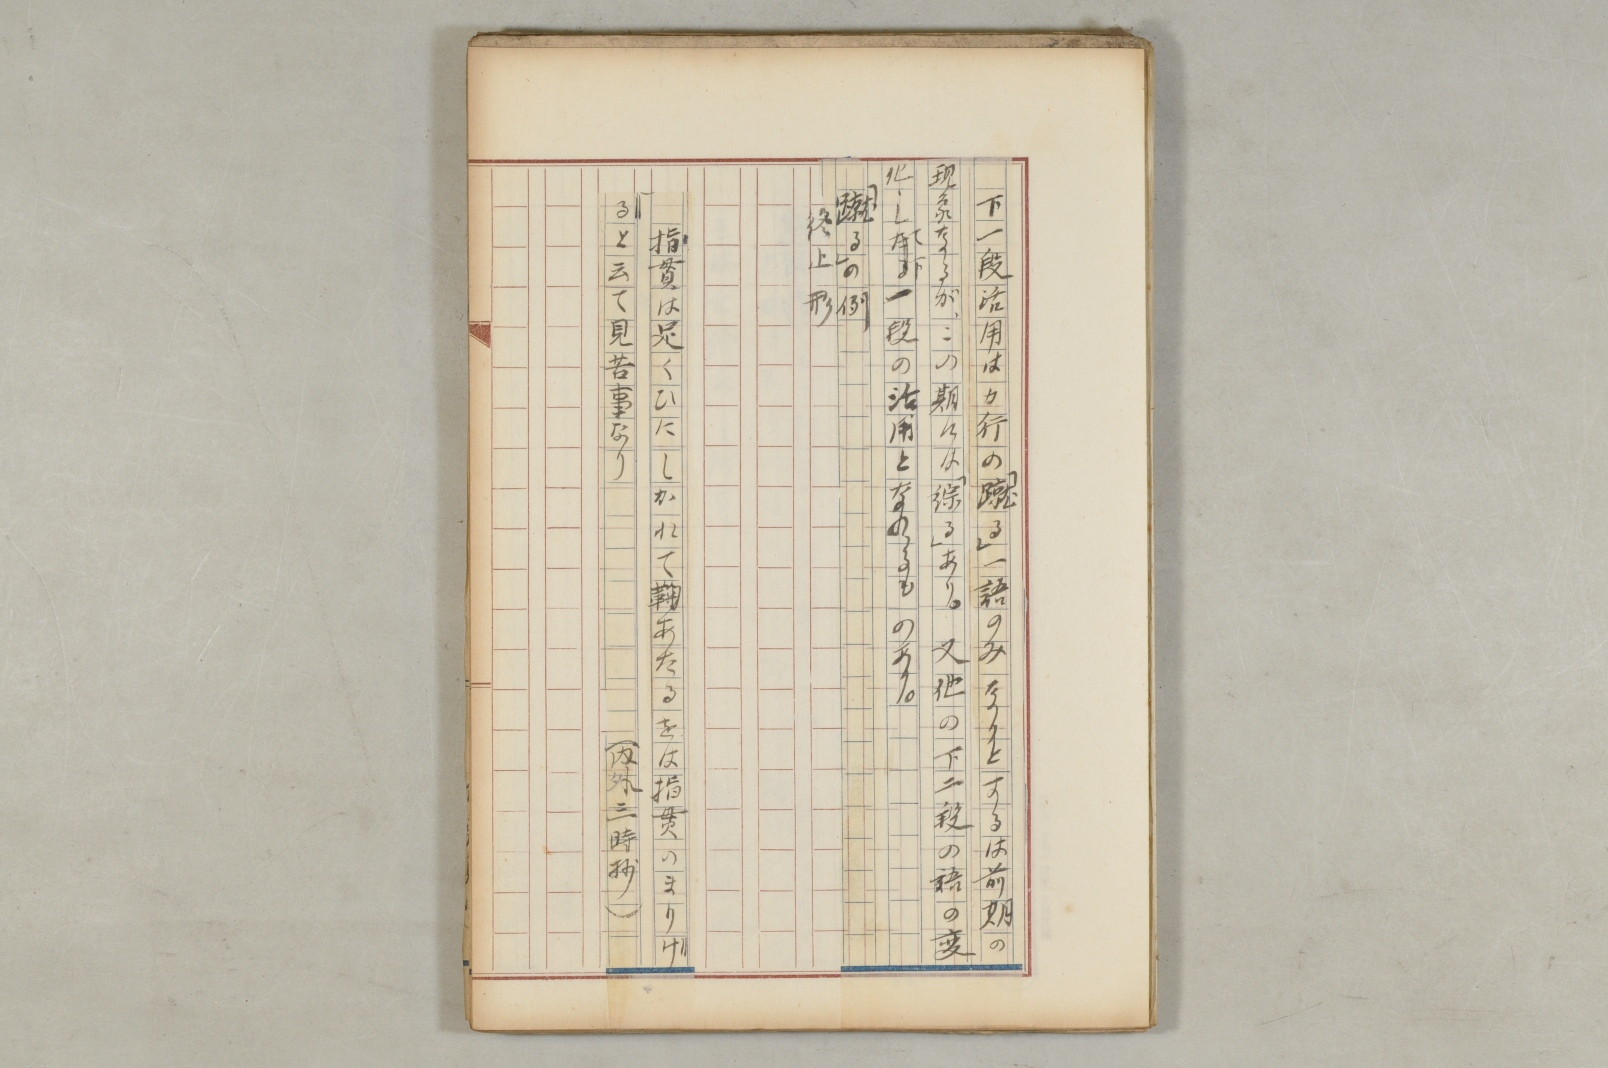 下一段活用はカ行の「蹴る」一語のみなりとするは前期の
現象なるが、この期には「綜る」あり。又他の下二段の語の変
化したる一段の活用となれるものあり。
「蹴る」の例
終止形
指貫は足くひにしかれて鞠あたるをは指貫のまりけ
ると云て見苦事なり
(内外三時抄)